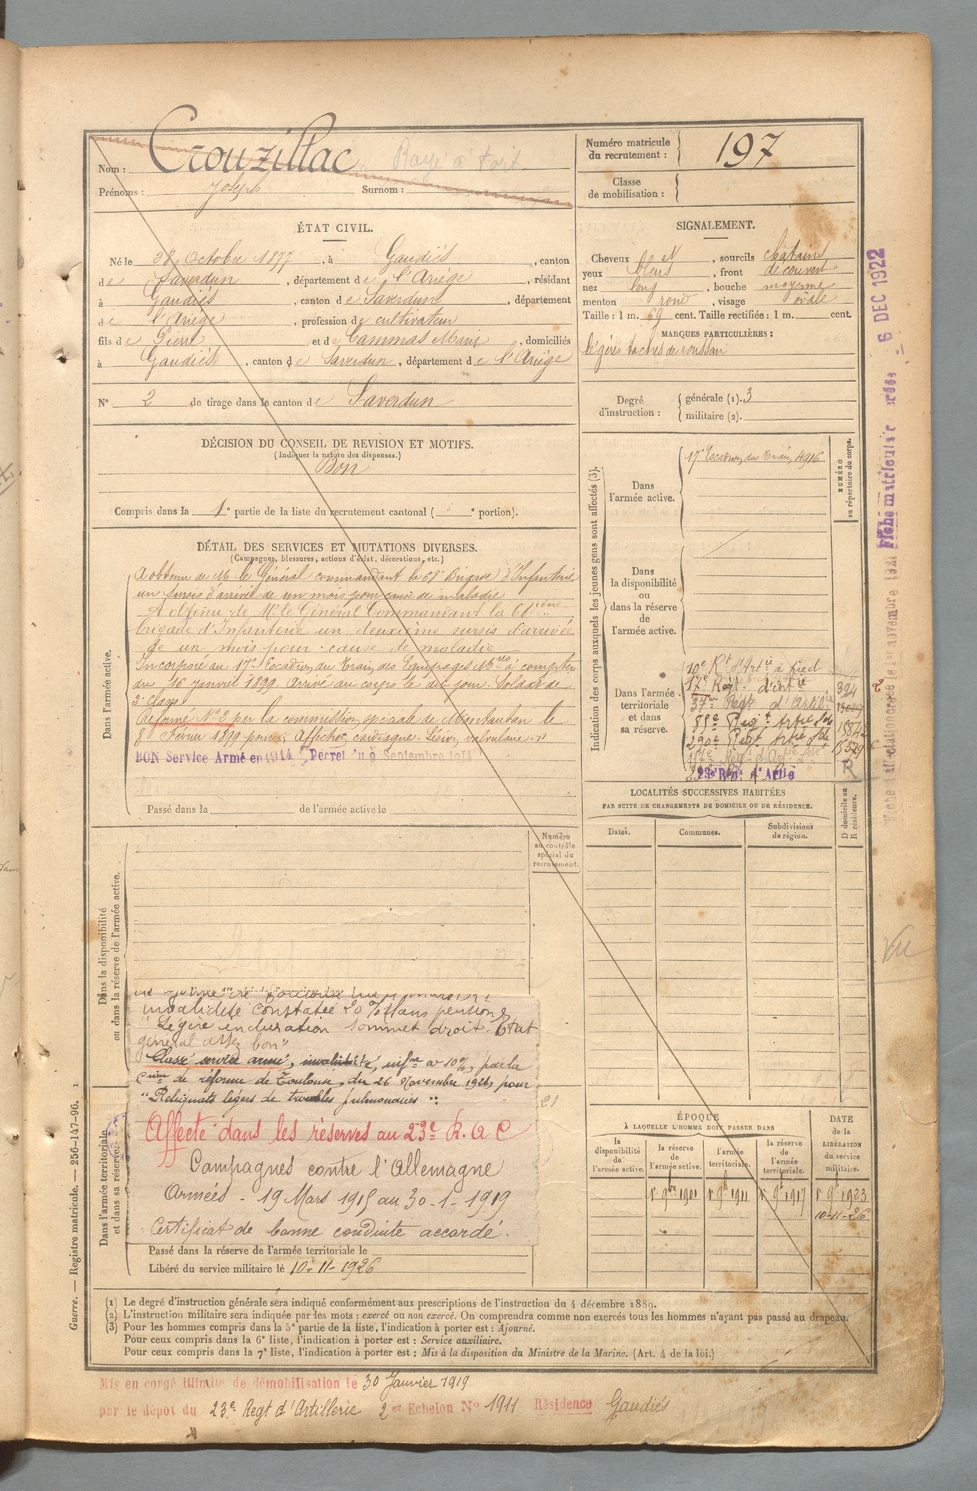 Nom : Crouzillac Rayé à tort
Prénoms : Joseph Surnom :
Numéro matricule du recrutement : 197
Classe de mobilisation :
ÉTAT CIVIL.
Né le 28 Octobre 1877, à Gaudiès, canton
de Saverdun, département de l'Ariège, résidant
à Gaudiès, canton de Saverdun, département
de l'Ariège, profession de cultivateur
fils de Pierre et de Cammas Marie, domiciliés
à Gaudiès, canton de Saverdun, département de l'Ariège
N° 2 de tirage dans le canton de Saverdun
SIGNALEMENT.
Cheveux et, sourcils châtains
yeux bleus, front découvert
nez long, bouche moyenne
menton rond, visage ovale
Taille : 1 m. 69 cent. Taille rectifiée : 1 m. cent.
MARQUES PARTICULIÈRES :
légères taches de rousseur
Degré d'instruction : générale (1). 3
militaire (2).
DÉCISION DU CONSEIL DE REVISION ET MOTIFS.
(Indiquer la nature des dispenses.)
Bon
Compris dans la 1e partie de la liste du recrutement cantonal ( e portion).
DÉTAIL DES SERVICES ET MUTATIONS DIVERSES.
(Campagnes, blessures, actions d'éclat, décorations, etc.)
Dans l'armée active.
A obtenu de Mr le Général commandant la 68e Brigade d'Infanterie
un sursis d'arrivée de un mois pour cause de maladie
A obtenu de Mr le Général Commandant la
brigade d'Infanterie un deuxième sursis d'arrivée
de un mois pour cause de maladie
Incorporé au 17e Escadron du Train des Equipages Mres à compter
du 16 janvier 1899. Arrivé au corps le dit jour. Soldat de
2e classe
Réformé N° 2 par la commission spéciale de Montauban le
8 Février 1899 pour « Affection cardiaque. Lésion valvulaire »
BON Service Armé en 1914 Décret du 9 Septembre 1914
Passé dans la de l'armée active le
Indication des corps auxquels les jeunes gens sont affectés (3).
Dans l'armée active.
17e Escadron du Train 4916
NUMÉRO au répertoire du corps.
Dans la disponibilité ou dans la réserve de l'armée active.
Dans l'armée territoriale et dans sa réserve.
10e Rt d'Artie à pied
17e Régt d'Artie 324
37me Régt d'Artil
Regt Artie
Regt Artie
23e Régt d'Artie
R
LOCALITÉS SUCCESSIVES HABITÉES
PAR SUITE DE CHANGEMENTS DE DOMICILE OU DE RÉSIDENCE.
Dates. Communes. Subdivisions de région. D domicile ou R résidence.
Numéro au contrôle spécial du recrutement.
Dans la disponibilité ou dans la réserve de l'armée active.
invalidité constatée 20 % sans pension
"Légère induration sommet droit. Etat
général assez bon"
Classé service armé, invalidité, infre à 10 %, par la
Cion de réforme de Toulouse, du 26 Novembre 192, pour
"Reliquats légers de troubles pulmonaires".
Affecté dans les réserves au 23e R.A.C
Campagnes contre l'Allemagne
Armées - 19 Mars 1915 au 30-1-1919
Certificat de bonne conduite accordé.
Dans l'armée territoriale et dans sa réserve.
Passé dans la réserve de l'armée territoriale le
Libéré du service militaire le 10-11-1926
ÉPOQUE
À LAQUELLE L'HOMME DOIT PASSER DANS
la disponibilité de l'armée active. la réserve de l'armée active. l'armée territoriale. la réserve de l'armée territoriale.
DATE de la LIBÉRATION du service militaire.
1er 9bre 1901 1er 9bre 1911 1er 9bre 1917 1er 9bre 1923
10-11-26
(1) Le degré d'instruction générale sera indiqué conformément aux prescriptions de l'instruction du 4 décembre 1889.
(2) L'instruction militaire sera indiquée par les mots : exercé ou non exercé. On comprendra comme non exercés tous les hommes n'ayant pas passé au drapeau.
(3) Pour les hommes compris dans la 5e partie de la liste, l'indication à porter est : Ajourné.
Pour ceux compris dans la 6e liste, l'indication à porter est : Service auxiliaire.
Pour ceux compris dans la 7e liste, l'indication à porter est : Mis à la disposition du Ministre de la Marine. (Art. 4 de la loi.)
Mis en congé illimité de démobilisation le 30 Janvier 1919
par le dépôt du 23e Regt d'Artillerie 2er Echelon N° 1911 Résidence Gaudiès
Guerre. — Registre matricule. — 256-147-96.
Fiche matriculaire créée - 6 DEC 1922
Vu